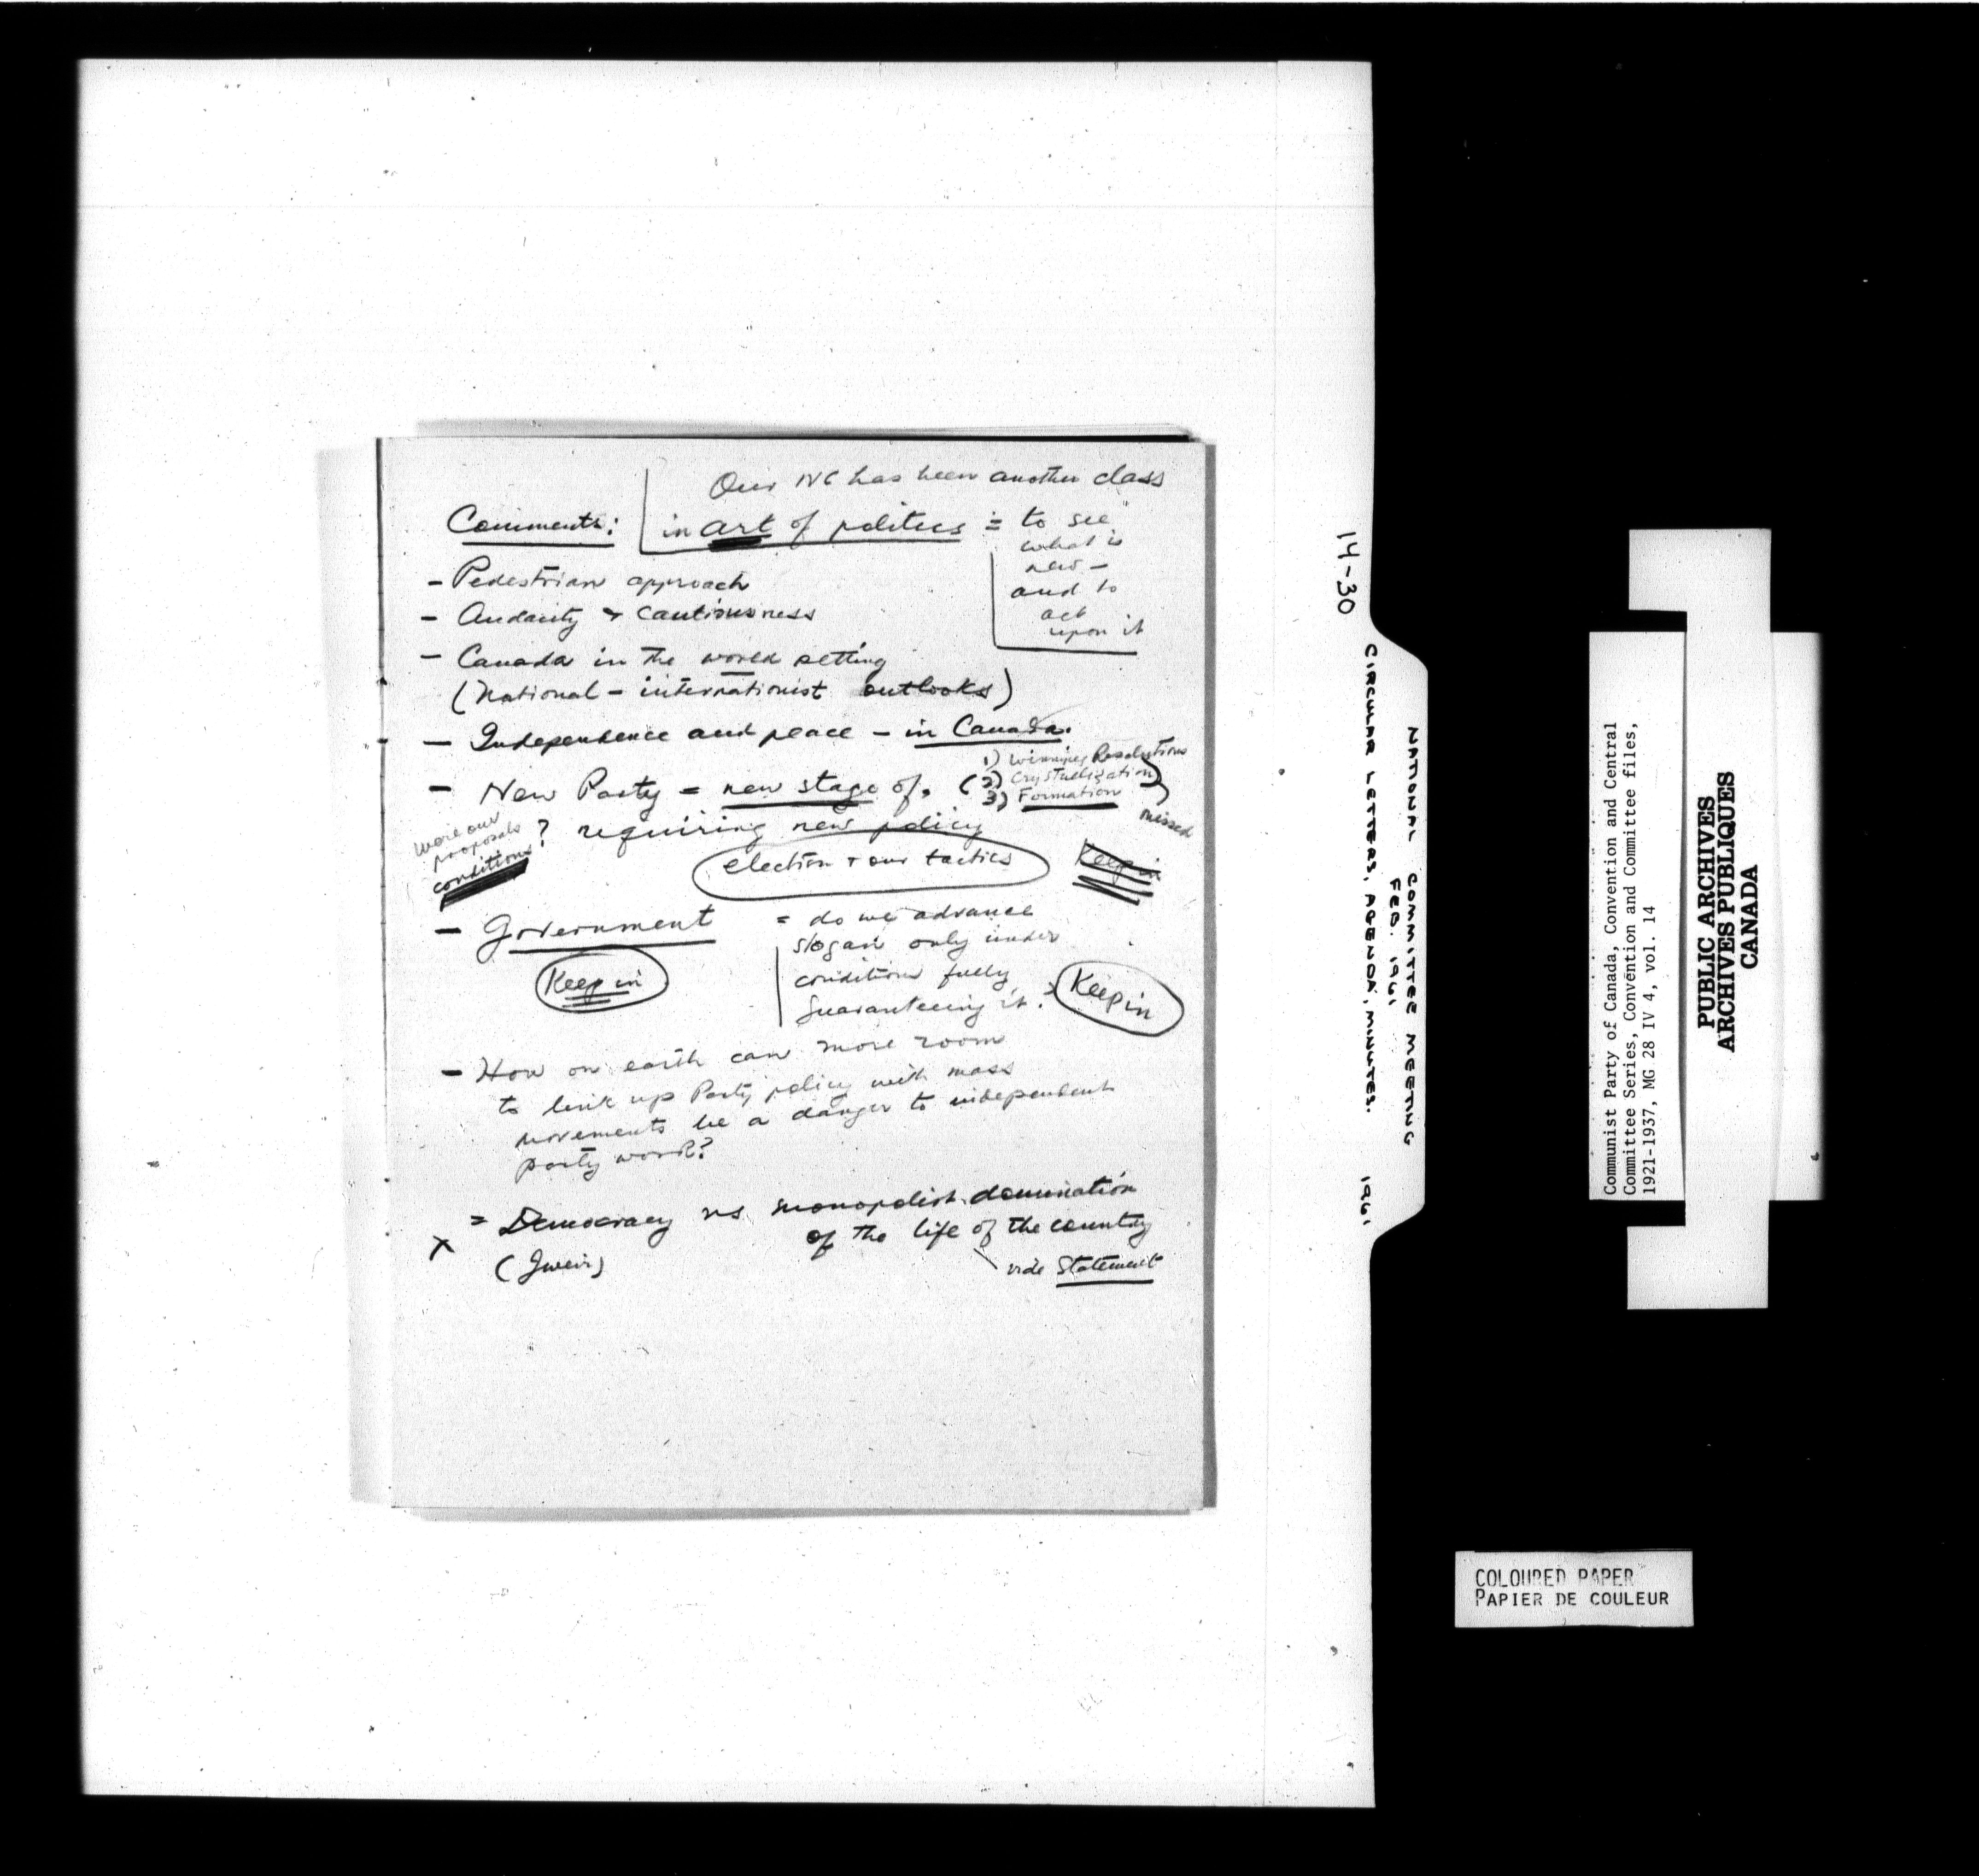 Our NC has been another class
Comments: in art of politics = to see
what is
new —
and to
act
upon it
— Pedestrian approach
— Audacity + cautiousness
— Canada in the world setting
(National – internationist outlooks)
— Independence and peace – in Canada.
— New Party = new stage of. (1) Winnipeg Resolutions
2) Crystallization
3) Formation)
missed
were our
proposals
conditions
? requiring new policy
election + our tactics
Keep in
— Government = do we advance
slogan only under
conditions fully
guaranteeing it.
Keep in
Keep in
— How on earth can more room
to link up Party policy with mass
movements be a danger to independent
party work?
= Democracy vs monopolist domination
of the life of the country
x
vide Statement
14-30
NATIONAL COMMITTEE MEETING
FEB. 1961,
CIRCULAR LETTERS, AGENDA, MINUTES. 1961
Communist Party of Canada, Convention and Central
Committee Series, Convention and Committee files,
1921-1937, MG 28 IV 4, vol. 14
PUBLIC ARCHIVES
ARCHIVES PUBLIQUES
CANADA
COLOURED PAPER
PAPIER DE COULEUR